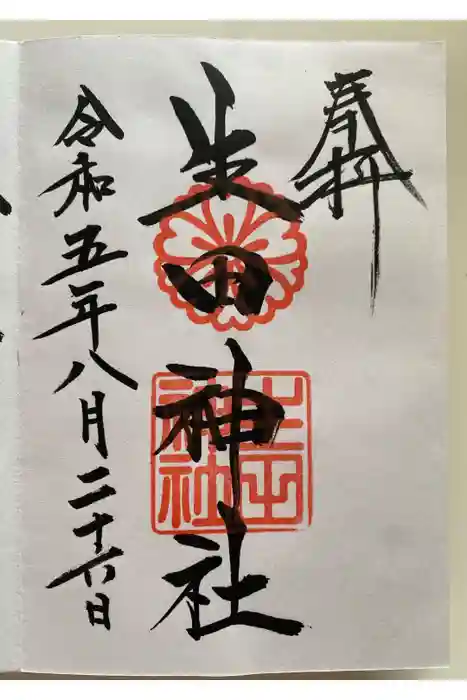 奉拝
生田神社
生田神社
令和五年八月二十六日